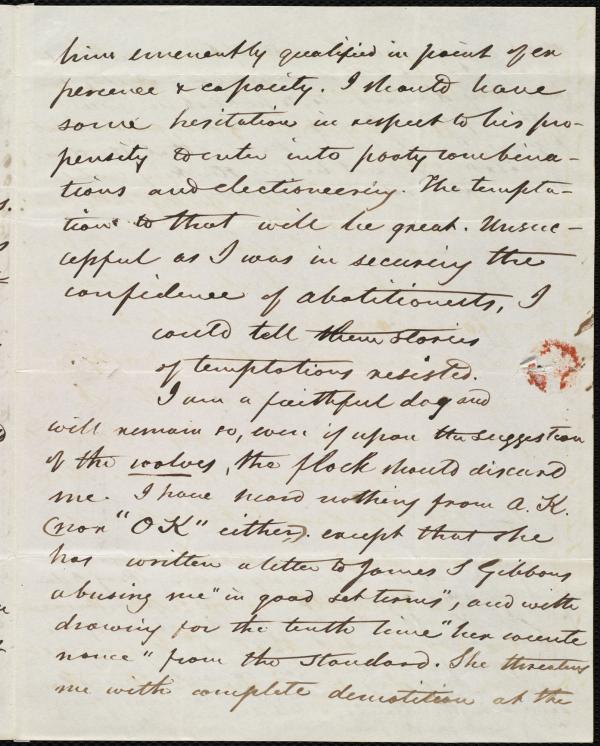 him eminently qualified in point of ex
perience & capacity. I should have
some hesitation in respect to his pro-
pensity to enter into party combina-
tions and electioneering. The tempta-
tion to that will be great. Unsuc-
cessful as I was in securing the
confidence of abolitionists, I
could tell them stories
of temptations resisted.
I am a faithful dog and
will remain so, even if upon the suggestion
of the wolves, the flock should discard
me. I have heard nothing from A. K.
(nor "OK" either). except that she
has written a letter to James S Gibbons
abusing me "in good set terms", and with
drawing for the tenth time "her counte
nance" from the Standard. She threatens
me with complete demolition at the